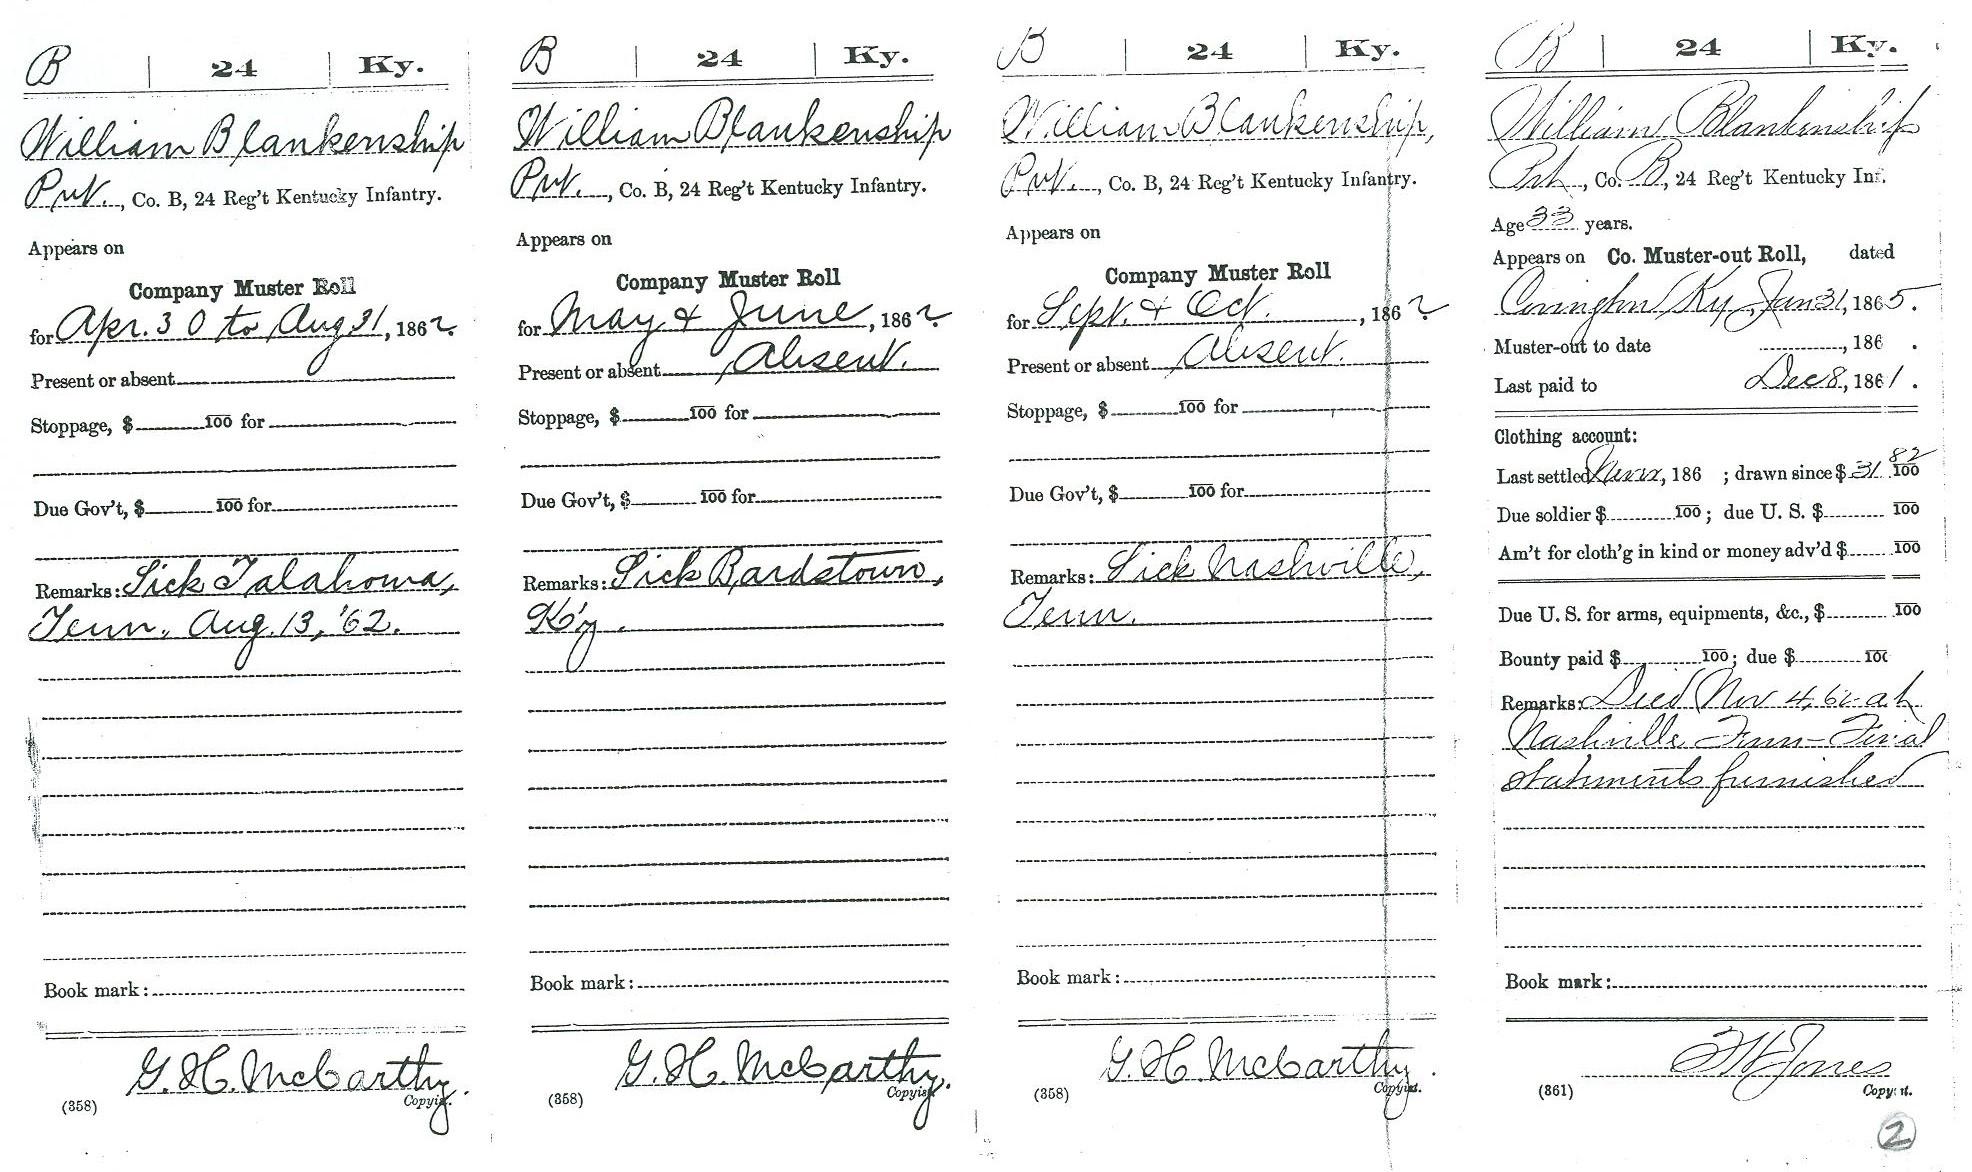 B 24 Ky.
William Blankenship
Pvt., Co. B, 24 Reg't Kentucky Infantry.
Appears on
Company Muster Roll
for Apr. 30 to Aug 31, 1862.
Present or absent
Stoppage, $ 100 for
Due Gov't, $ 100 for
Remarks: Sick Talahoma,
Tenn., Aug. 13, '62.
Book mark:
G. H. McCarthy.
(358) Copyist.
B 24 Ky.
William Blankenship
Pvt., Co. B, 24 Reg't Kentucky Infantry.
Appears on
Company Muster Roll
for May & June, 1862.
Present or absent Absent.
Stoppage, $ 100 for
Due Gov't, $ 100 for
Remarks: Sick Bardstown,
K'y.
Book mark:
G. H. McCarthy.
(358) Copyist.
B 24 Ky.
William Blankenship,
Pvt., Co. B, 24 Reg't Kentucky Infantry.
Appears on
Company Muster Roll
for Sept. & Oct., 1862.
Present or absent Absent.
Stoppage, $ 100 for
Due Gov't, $ 100 for
Remarks: Sick Nashville,
Tenn.
Book mark:
G. H. McCarthy.
(358) Copyist.
B 24 Ky.
William Blankenship
Pvt, Co. B, 24 Reg't Kentucky Inf.
Age 33 years.
Appears on Co. Muster-out Roll, dated
Covington Ky, Jan 31, 1865.
Muster-out to date , 186 .
Last paid to Dec 8, 1861.
Clothing account:
Last settled Never, 186 ; drawn since $ 31 82/100
Due soldier $ 100; due U. S. $ 100
Am't for cloth'g in kind or money adv'd $ 100
Due U. S. for arms, equipments, &c., $ 100
Bounty paid $ 100; due $ 100
Remarks: Died Nov 4, 62 at
Nashville Tenn - Final
statements furnished
Book mark:
Jones
(861) Copyist.
2